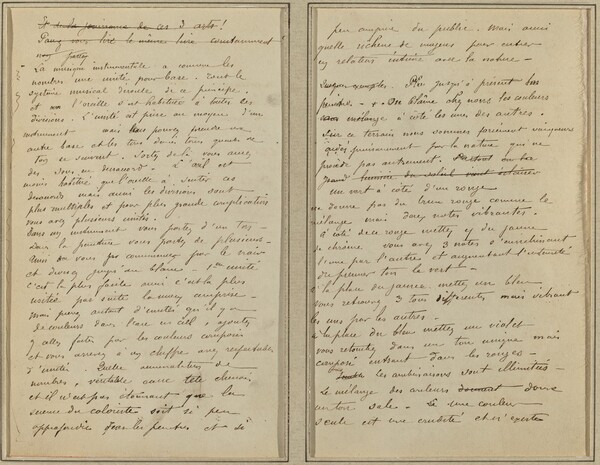 Et de la jouissance de ces 3 arts!
lire le même livre constamment
La musique instrumentale a comme les
nombres une unité pour base. Tout le
système musical découle de ce principe.
et l'oreille s'est habituée à toutes ces
divisions. L'unité est prise au moyen d'un
instrument mais vous pouvez prendre une
autre base et les tons demi tons quarts de
ton se suivent. Sortez de là vous avez
des sons en désaccord. L'œil est
moins habitué que l'oreille à sentir ces
désaccords mais aussi les divisions sont
plus multiples et pour plus grande complication
vous avez plusieurs unités.
Dans un instrument vous partez d'un ton —
dans la peinture vous partez de plusieurs.
Ainsi vous commencez par le noir
et divisez jusqu'au blanc — 1ère unité
c'est la plus facile aussi c'est la plus
usitée par suite la mieux comprise —
Mais prenez autant d'unités qu'il y a
de couleurs dans l'arc en ciel, ajoutez
y celles faites par les couleurs composées
et vous arrivez à un chiffre assez respectable
d'unités. Quelle accumulation de
nombres, véritable casse tête chinois,
et il n'est pas étonnant que la
science du coloriste soit si peu
approfondie par les peintres et si
peu comprise du public. Mais aussi
quelle richesse de moyens pour entrer
en relation intime avec la nature —
jusqu'à présent
On blâme chez nous les couleurs
sans mélange à côté les unes des autres.
Sur ce terrain nous sommes forcément vainqueurs
aidés puissamment par la nature qui ne
procède pas autrement.
un vert à côté d'un rouge
ne donne pas du brun rouge comme le
mélange mais deux notes vibrantes.
À côté de ce rouge mettez du jaune
de chrome vous avez 3 notes s'enrichissant
l'une par l'autre et augmentant l'intensité
du premier ton le vert —
à la place du jaune mettez un bleu
vous retrouvez 3 tons différents, mais vibrant
les uns par les autres —
à la place du bleu mettez un violet
vous retombez dans un ton unique mais
composé entrant dans les rouges —
les combinaisons sont illimitées —
Le mélange des couleurs donne
un ton sale. — une couleur
seule est une crudité et n'existe